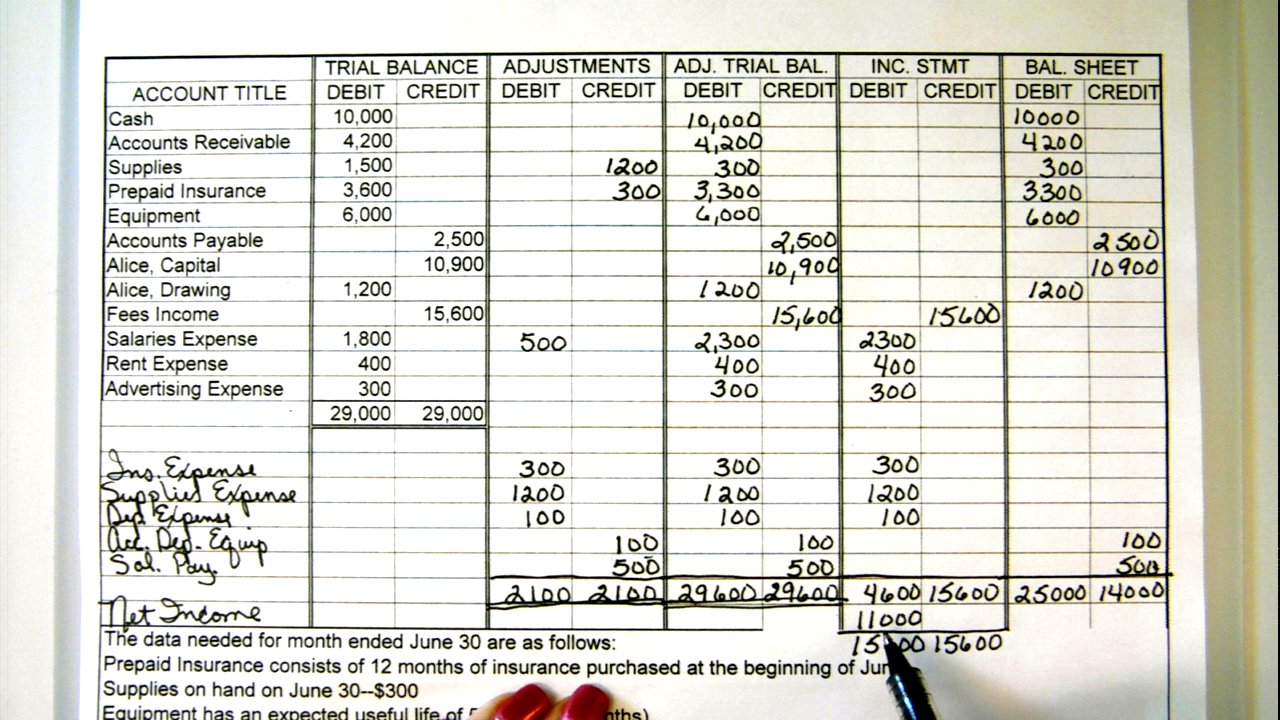 TRIAL BALANCE ADJUSTMENTS ADJ. TRIAL BAL. INC. STMT BAL. SHEET
ACCOUNT TITLE DEBIT CREDIT DEBIT CREDIT DEBIT CREDIT DEBIT CREDIT DEBIT CREDIT
Cash 10,000 10,000 10000
Accounts Receivable 4,200 4,200 4200
Supplies 1,500 1200 300 300
Prepaid Insurance 3,600 300 3,300 3300
Equipment 6,000 6,000 6000
Accounts Payable 2,500 2,500 2500
Alice, Capital 10,900 10,900 10900
Alice, Drawing 1,200 1200 1200
Fees Income 15,600 15,600 15600
Salaries Expense 1,800 500 2,300 2300
Rent Expense 400 400 400
Advertising Expense 300 300 300
29,000 29,000
Ins. Expense 300 300 300
Supplies Expense 1200 1200 1200
Dep. Expense 100 100 100
Acc. Dep. Equip 100 100 100
Sal. Pay. 500 500 500
2100 2100 29600 29600 4600 15600 25000 14000
Net Income 11000
The data needed for month ended June 30 are as follows: 15600
Prepaid Insurance consists of 12 months of insurance purchased at the beginning of
Supplies on hand on June 30--$300
Equipment has an expected useful life of